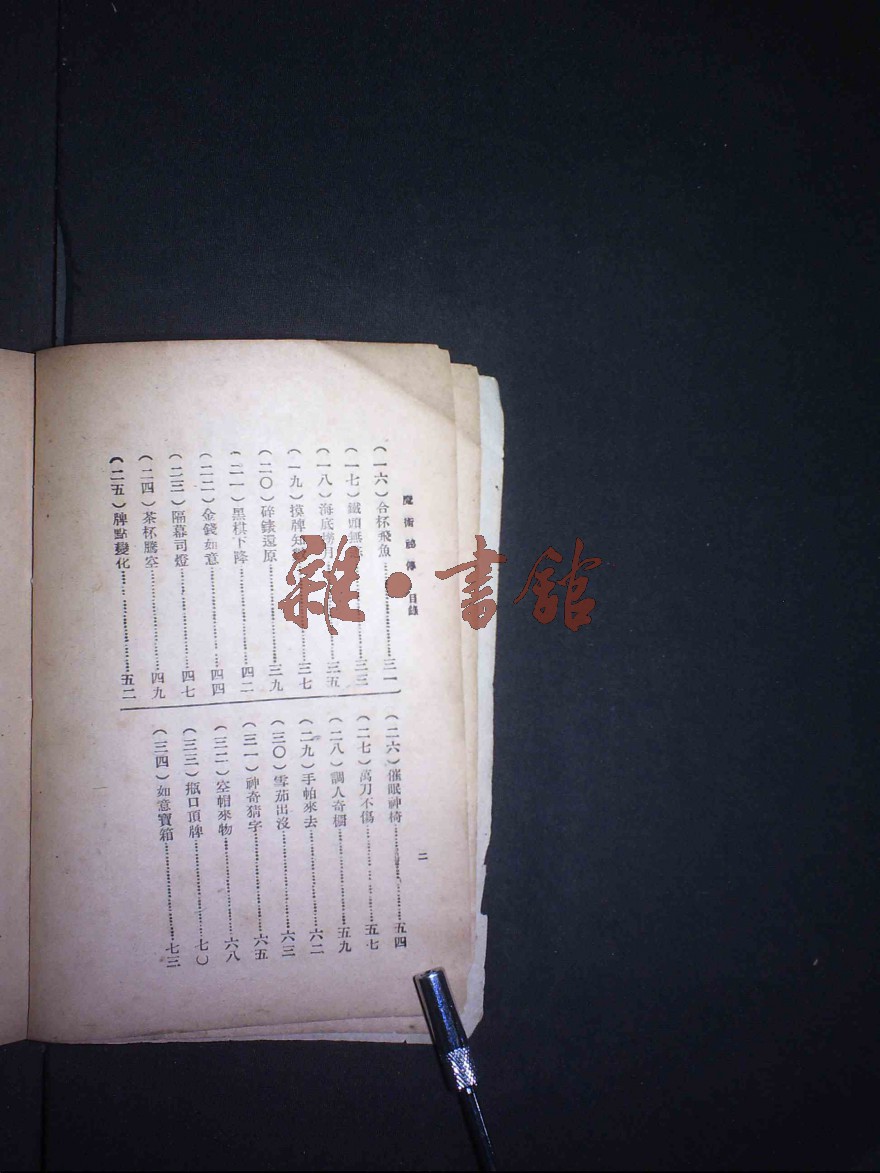 魔術祕傳 目錄
(一六)合杯飛魚……三一
(一七)鐵頭……三三
(一八)海底撈月……三五
(一九)摸牌知……三七
(二〇)碎錶還原……三九
(二一)黑棋下降……四二
(二二)金錢如意……四四
(二三)隔幕司燈……四七
(二四)茶杯騰空……四九
(二五)牌點變化……五二
(二六)催眠神椅……五四
(二七)萬刀不傷……五七
(二八)調人奇櫃……五九
(二九)手帕來去……六二
(三〇)雪茄出沒……六三
(三一)神奇猜字……六五
(三二)空帽來物……六八
(三三)瓶口頂牌……七〇
(三四)如意寶箱……七三
二
雜·書館